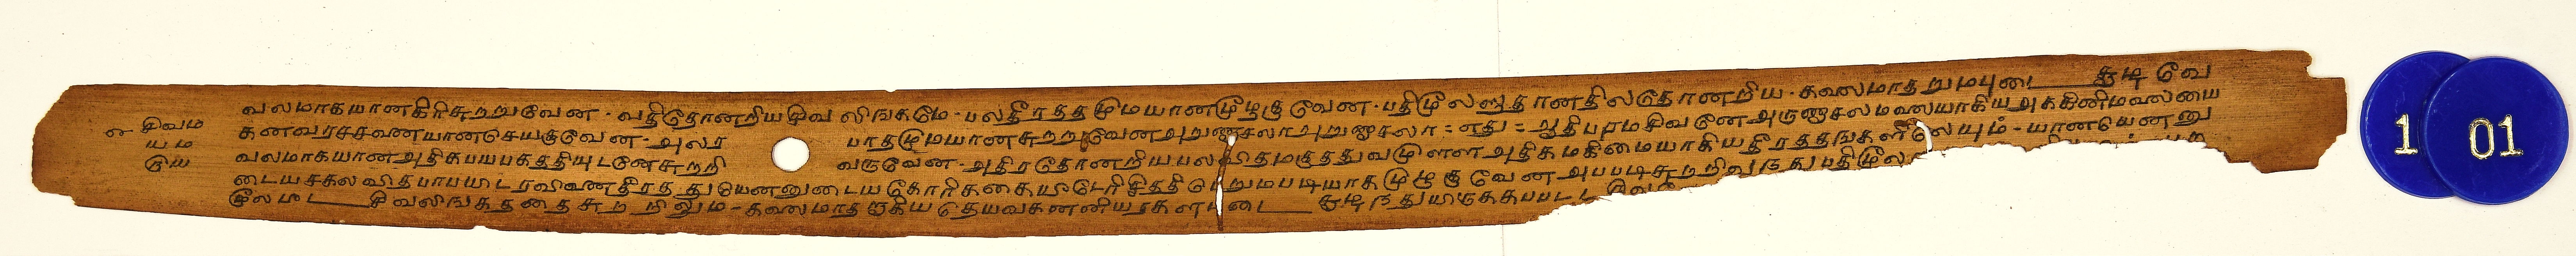 எ சிவம
ய ம
டுய
வலமாகயானகிரிசுறறுவேன - வதிதோனறியசிவ லிஙகமே - பலதீரததமுமயானமுழகுவேன - பதிமூலஸதானதிலதோனறிய - கலைமாதறுமபுடை கூடி வே
கனவரசசணையானசெயகுவேன - அலர பாதமுமயானசுறறுவேனஅறுணாசலா அறுணாசலா = எது = ஆதிபரமசிவனேஅருணாசலமலையாகியஅககினிமலையை
வலமாகயானஅதிகபயபகததியுடனேசுறறி வருவேன - அதிரதோனறியபலவிதமகுததுவமுளளஅதிகமகிமையாகியதீரததஙகளிலேயும் - யானயெனனு
டையசகலவிதபாபயிடரவிணைதீரத துயெனனுடையகோரிககையீடேரிசிததிபெறுமபடியாகமுழுகுவேனஅபபடிசுறறிவருதுபதிமூல
மூலமட சிவலிஙகதனதைசுறறிலும - கலைமாதறாகியதெயவகனனியரகளபுடை கூடிநதுயிருககபபட